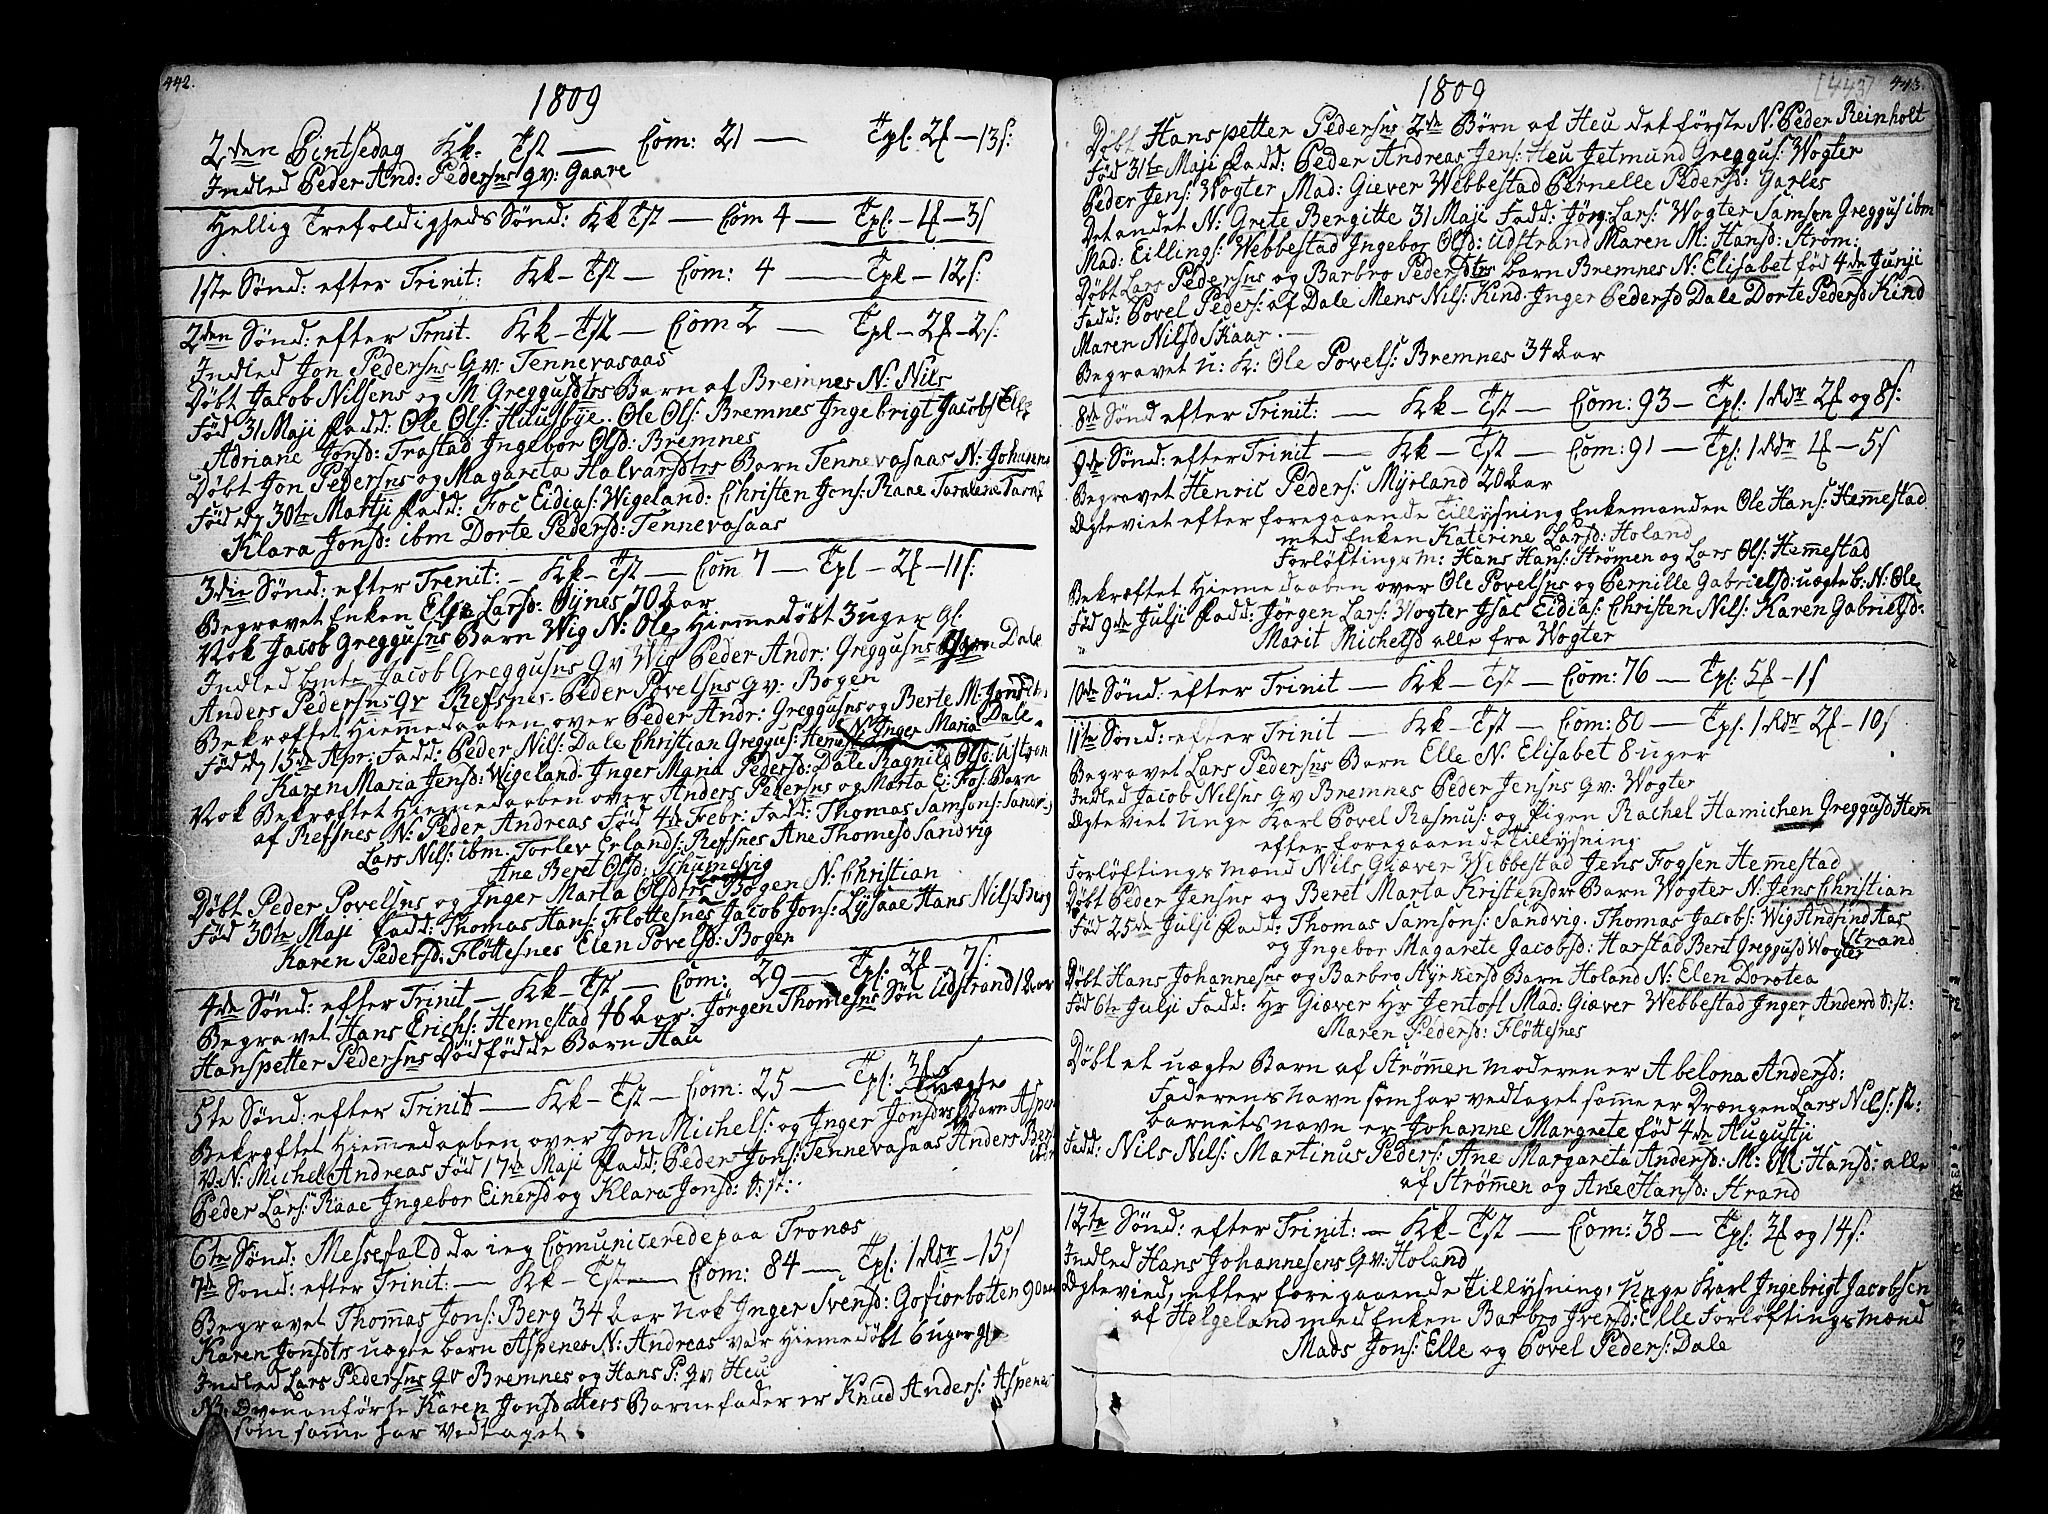 442.
1809
2den Pintsedag Kk- Tst — Com: 21 — Tpl: 2f — 13s:
Indled Peder And: Pedersns qv: Gaare
Hellig Trefoldigheds Sønd: Kk Tst — Com 4 — Tpl. - 4f - 3s
1ste Sønd: efter Trinit: Kk - Tst — Com: 4 — Tpl - 12s:
2den Sønd: efter Trnit. Kk - Tst — Com 2 — Tpl - 2f - 2s:
Indled Jon Pedersns Qv: Tennevasaas
Døbt Jacob Nilsens og M Greggusdtrs Barn af Bremnes N: Nils
Fød 31 Maji Fadd: Ole Ols: Huusbye. Ole Ols: Bremnes Ingebrigt Jacobs Elle
Adriane Jonsd: Trastad Ingebor Olsd: Bremnes
Døbt Jon Pedersns og Magareta Halvarsdtrs Barn Tennevasaas N: Johannes
Fød dj 30te Matji Fadd: Foc Eidias: Wigeland: Christen Jons: Raae
Klara Jonsd: ibm Dorte Pedersd: Tennevasaas
3die Sønd: efter Trenit: - Kk - Tst — Com 7 — Tpl - 2f - 11s:
Begravet Enken Else Larsd: Øynes 70 Aar
Nok Jacob Greggusns Barn Wig N: Ole Hiemmedøbt 3 uger gl.
Indled bmte Jacob Greggusns Qv Wig Peder Andr: Greggusns Dale
Anders Pedersns Qv Refsnes. Peder Povelsns Qv: Bogen
Bekræftet Hiemmedaaben over Peder Andr: Greggusns og Berte M: Jonsdtrs
N: Inger Maria Dale
Fød dj 15de Apr: Fadd: Peder Nils: Dale Christian Greggus: Hemest
Karen Maria Jensd: Wigeland. Inger Maria Pedersd: Dale Ragnild Olsd: Ustran
Nok Bekræftet Hiemmedaaben over Anders Pedersns og Marta Ei: Fos: Barn
af Refsnes N: Peder Andreas Fød 4de Febr: Fadd: Thomas Samsons: Sandv:
Lars Nils: ibm. Torlev Erlands: Refsnes Ane Thomesd Sandvig
Ane Beret Olsd:
Døbt Peder Povelsns og Inger Marta Olsdtrs Bogen N: Christian
Fød 30te Maji Fadd: Thomas Hans: Fløttesnes Jacob Jons: Lysaae Hans Nils: Brug
Karen Pedersd: Fløttesnes Elen Povelsd: Bogen
4de Sønd: efter Trinit — Kk - Tst — Com: 29 — Tpl: 2f - 7s:
Begravet Hans Erichs: Hemestad 46 Aar. Jörgen Thomesns Søn Udstrand 1 Aar
Hanspetter Pedersns Dødfødde Barn Hau
5te Sønd: efter Trinit — Kk - Tst — Com: 25 — Tpl: 3f
Uægte
Bekræftet Hiemmedaaben over Jon Michels: og Inger Jonsdrs Barn Aspen
V: N: Michel Andreas Fød 17de Maji Fadd: Peder Jons: Tennevasaas Anders Ber
Peder Lars: Raae Ingebor Einersd og Klara Jonsd: S: st:
6te Sønd: Messefald da ieg Comuniceredepaa Tronæs
7de Sønd: efter Trinit: — Kk - Tst — Com: 84 — Tpl: 1 Rdr - 15s
Begravet Thommas Jons: Berg 34 Aar Nok Inger Svensd: Gofiorbotten 90 aar
Karen Jonsdtrs uægte barn Aspenes N: Andreas var Hiemedøbt 6 uger gl
Indled Lars Pedersns Qv Bremnes og Hans P: Qv Heu
NB: Ovenanførte Karen Jonsdatters Barnefader er Knud Anders: Aspenes
som samme har Vedtaget.
[443] 443.
1809
Døbt Hanspetter Pedersns 2de Børn af Heu det første N. Peder Reinholt
Fød 31te Maji Fadd: Peder Andreas Jens: Heu Jetmund Greggus: Wogter
Peder Jens: Wogter Mad: Giever Webbestad Pernelle Pedersd: Garles
Det andet N: Grete Bergitte 31 Maji Fadd: Jörg: Lars: Wogter Samson Greggus ibm
Mad: Eillings: Webbestad Ingebor Olsd: Udstrand Maren M: Hansd: Strøm:
Døbt Lars Pedersns og Barbro Pedersdtrs barn Bremnes N: Elisabet fød 4de Junji
Fadd: Povel Peders: af Dale Mens Nils: Kind. Inger Pedersd Dale Dorte Pedersd Kind
Maren Nilsd Skaar. —
Begravet u: K: Ole Povels: Bremnes 34 Aar
8de Sønd efter Trinit: — Kk - Tst — Com: 93 — Tpl: 1 Rdr 2f og 8s:
9de Sønd: efter Trinit — Kk - Tst — Com: 91 — Tpl: 1 Rdr 4f — 5s
Begravet Henric Peders: Myrland 20 Aar
Ægteviet efter foregaaende Tillysning Enkemanden Ole Hans: Hemmestad
med Enken Katerine Larsd: Holand
Forløftings m: Hans Hans: Strømen og Lars Ols: Hemmestad
Bekræftet Hiemedaaben over Ole Povelsns og Pernille Gabrielsd: uægte b: N: Ole
Fød 9de Julji Fadd: Jørgen Lars: Wogter Isac Eidias: Christen Nils: Karen Gabrielsd:
Marit Michelsd alle fra Wogter
10de Sønd: efter Trinit — Kk - Tst — Com: 76 — Tpl: 5f - 1s
11te Sønd: efter Trinit — Kk - Tst — Com: 80 — Tpl: 1 Rdr 2f - 10s
Begravet Lars Pedersns Barn Elle N. Elisabet 8 uger
Indled Jacob Nilsns Qv Bremnes Peder Jensns Qv: Wogter
Ægteviet Unge Karl Povel Rasmus: og Pigen Rachel Hamichen Greggusd Hemm
efter foregaaende Tillysning
Forløftings mænd Nils Giæver Webbestad Jens Fogsen Hemmestad
Døbt Peder Jensns og Beret Marta Kristensdrs Barn Wogter N: Jens Christian
Fød 25de Julji Fadd: Thomas Samsons: Sandvig. Thomas Jacobs: Wig Andfind Has
Strand
og Ingebor Magarete Jacobsd: Harstad Beret Greggusd Wogter
Døbt Hans Johannesns og Barbro Barn Holand N: Elen Dorotea
Fød 6te Julji Fadd: Hr Giæver Hr Jentoft Mad: Giæver Webbestad Inger Andersd S: st:
Maren Pedersd: Fløttesnes
Døbt et uægte Barn af Strømmen moderen er Abelona Andersd:
Faderens Navn som har vedtaget samme er Drængen Lars Nils: st:
barnets navn er Johanne Margrete fød 4de Augustji
Fadd: Nils Nils: Martinus Peders: Ane Margarita Andersd: M: M: Hansd: alle
af Strømmen og Ane Hansd: Strand
12te Sønd: efter Trinit: — Kk - Tst — Com: 38 — Tpl: 3f og 14s:
Indled Hans Johannesens Qv: Holand
Ægtevied, efter foregaaende Tillysning, Unge Karl Ingebrigt Jacobsen
af Helgeland med Enken Barbro Iversd: Elle Forløftings mænd
Mads Jons: Elle og Povel Peders: Dale